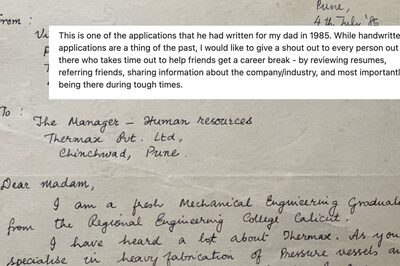 Pune,
4th July '85
From :
This is one of the applications that he had written for my dad in 1985. While handwritte
applications are a thing of the past, I would like to give a shout out to every person out
there who takes time out to help friends get a career break - by reviewing resumes,
referring friends, sharing information about the company/industry, and most importantl
being there during tough times.
To :
The Manager – Human resources
Thermax Pvt. Ltd.,
Chinchwad, Pune.
Dear madam,
I am a fresh Mechanical Engineering Graduate
from the Regional Engineering College Calicut.
I have heard a lot about Thermax. As you
specialise in heavy fabrication of Pressure vessels a